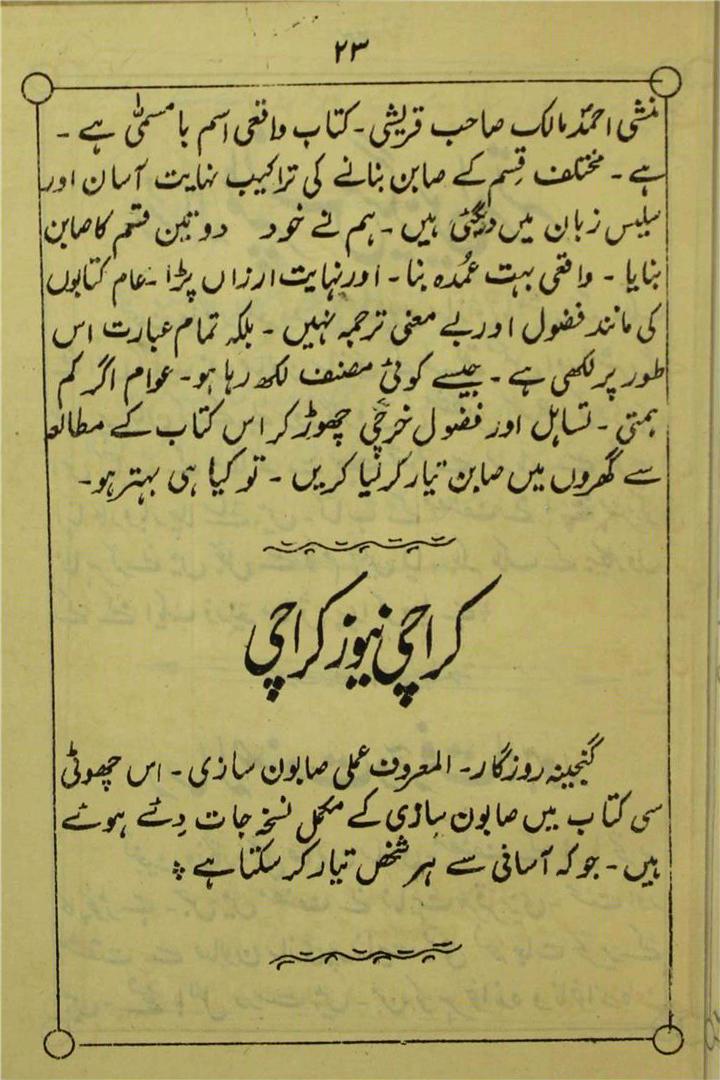 ۲۳
منشی احمد مالک صاحب قریشی۔ کتاب واقعی اسم بامسمیٰ ہے۔
ہے۔ مختلف قسم کے صابن بنانے کی تراکیب نہایت آسان اور
سلیس زبان میں دیگئی ہیں۔ ہم نے خود دو تین قسم کا صابن
بنایا۔ واقعی بہت عمُدہ بنا۔ اور نہایت ارزاں پڑا۔ عام کتابوں
کی مانند فضول اور بے معنی ترجمہ نہیں۔ بلکہ تمام عبارت اس
طور پر لکھی ہے۔ جیسے کوئی مصنف لکھ رہا ہو۔ عوام اگر کم
ہمتی۔ تساہل اور فضول خرچی چھوڑ کر اس کتاب کے مطالعہ
سے گھروں میں صابن تیار کر لیا کریں۔ تو کیا ہی بہتر ہو۔
کراچی نیوز کراچی
گنجینہ روزگار۔ المعروف عملی صابون سازی۔ اس چھوٹی
سی کتاب میں صابون سازی کے مکمل نسخہ جات دئے ہوئے
ہیں۔ جو کہ آسانی سے ہر شخص تیار کر سکتا ہے ؞